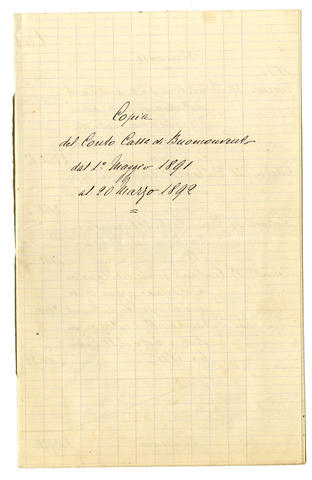 Copia
del Conto Cassa di Buonconvento
dal 1° Maggio 1891
al 20 Marzo 1892
=